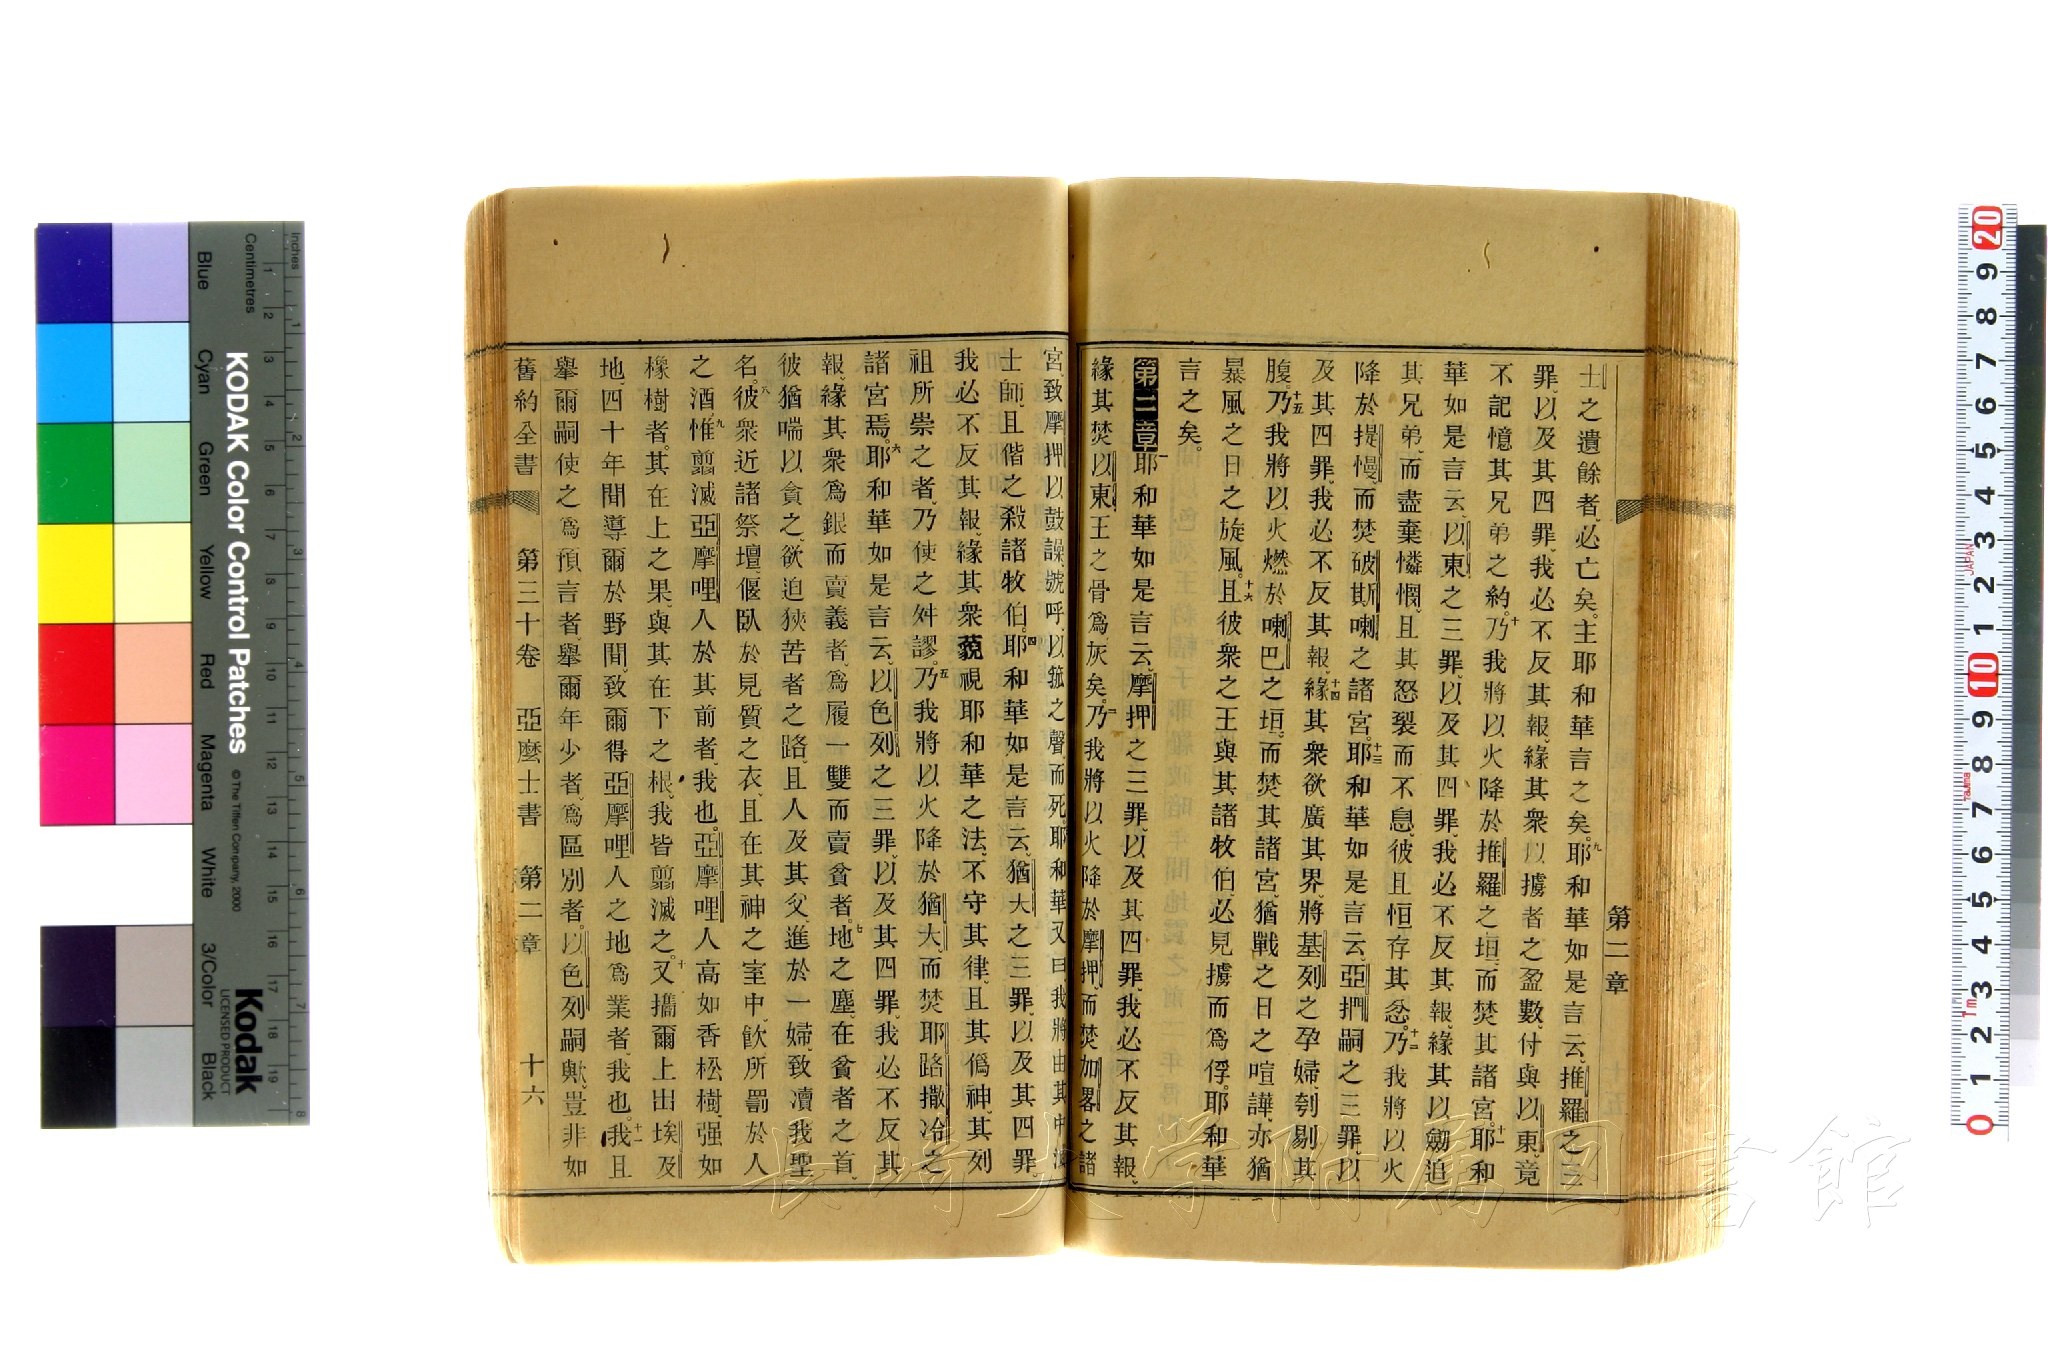 第二章
士之遺餘者、必亡矣。主耶和華言之矣。九耶和華如是言云、推羅之三
罪、以及其四罪、我必不反其報、緣其衆以擄者之盈數、付與以東、竟
不記憶其兄弟之約。十乃我將以火降於推羅之垣、而焚其諸宮。十一耶和
華如是言云、以東之三罪、以及其四罪、我必不反其報、緣其以劒迫
其兄弟、而盡棄憐憫、且其怒裂而不息、彼且恒存其忿。十二乃我將以火
降於提慢、而焚破斯喇之諸宮。十三耶和華如是言云、亞捫嗣之三罪、以
及其四罪、我必不反其報、十四緣其衆欲廣其界、將基列之孕婦、刳剔其
腹。十五乃我將以火燃於喇巴之垣、而焚其諸宮、猶戰之日之喧譁、亦猶
暴風之日之旋風。十六且彼衆之王與其諸牧伯、必見擄而爲俘。耶和華
言之矣。
第二章一耶和華如是言云、摩押之三罪、以及其四罪、我必不反其報、
緣其焚以東王之骨爲灰矣。二乃我將以火降於摩押、而焚加畧之諸
宮、致摩押以鼓譟、號呼、以箛之聲而死。耶和華又曰、我將由其中、滅
士師、且偕之殺諸牧伯。四耶和華如是言云、猶大之三罪、以及其四罪、
我必不反其報、緣其衆藐視耶和華之法、不守其律、且其僞神、其列
祖所崇之者、乃使之舛謬。五乃我將以火降於猶大、而焚耶路撒冷之
諸宮焉。六耶和華如是言云、以色列之三罪、以及其四罪、我必不反其
報、緣其衆爲銀而賣義者、爲履一雙而賣貧者。七地之塵、在貧者之首、
彼猶喘以貪之、欲迫狹苦者之路、且人及其父進於一婦、致瀆我聖
名。八彼衆近諸祭壇、偃臥於見質之衣、且在其神之室中、飮所罰於人
之酒、九惟翦滅亞摩哩人於其前者、我也。亞摩哩人高如香松樹、强如
橡樹者。其在上之果、與其在下之根、我皆翦滅之。十又攜爾上出埃及
地、四十年間導爾於野間、致爾得亞摩哩人之地爲業者、我也。十一我且
擧爾嗣使之爲預言者、擧爾年少者、爲區別者。以色列嗣歟、豈非如
舊約全書 第三十卷 亞麼士書 第二章 十六
長崎大学附属図書館
KODAK Color Control Patches
© The Tiffen Company, 2000
Kodak
LICENSED PRODUCT
Inches
Centimetres
Blue Cyan Green Yellow Red Magenta White 3/Color Black
JAPAN